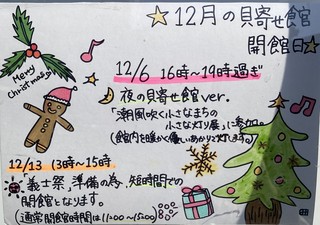 ☆12月の貝寄せ館
開館日☆
Merry
Christmas
12/6 16時~19時過ぎ
夜の貝寄せ館ver.
「潮風吹く小さなまちの
小さな灯り展」に参加。
(館内を暖かく優しいあかりで灯します)
12/13 13時~15時
義士祭、準備の為、短時間での
開館となります。
(通常開館時間は11:00~15:00)